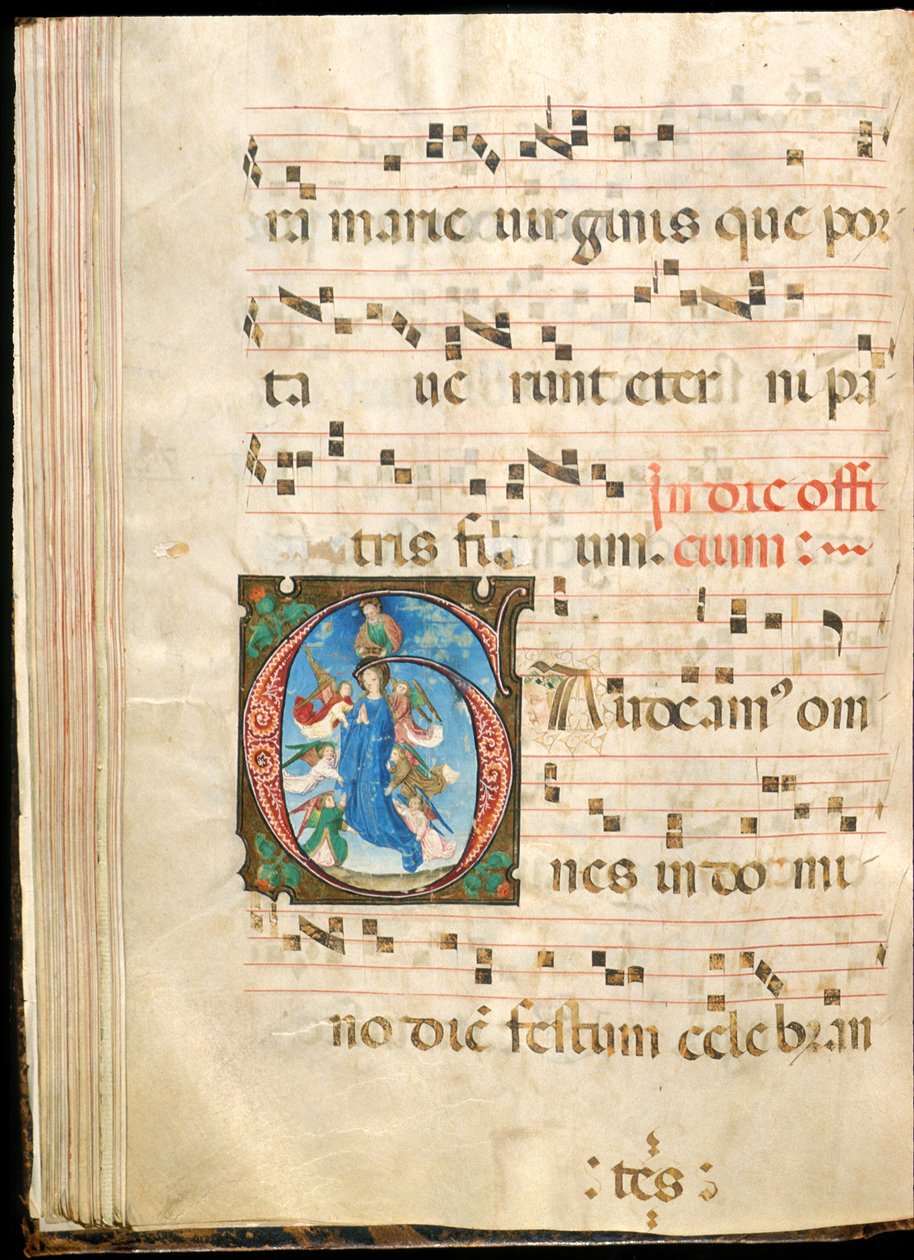 ra marie uirginis que por
ta ue runt eter ni pa
tris fili um. In die offi
cium :
G Audeamꝰ om
nes in do mi
no diē festum cele bran
: tes :